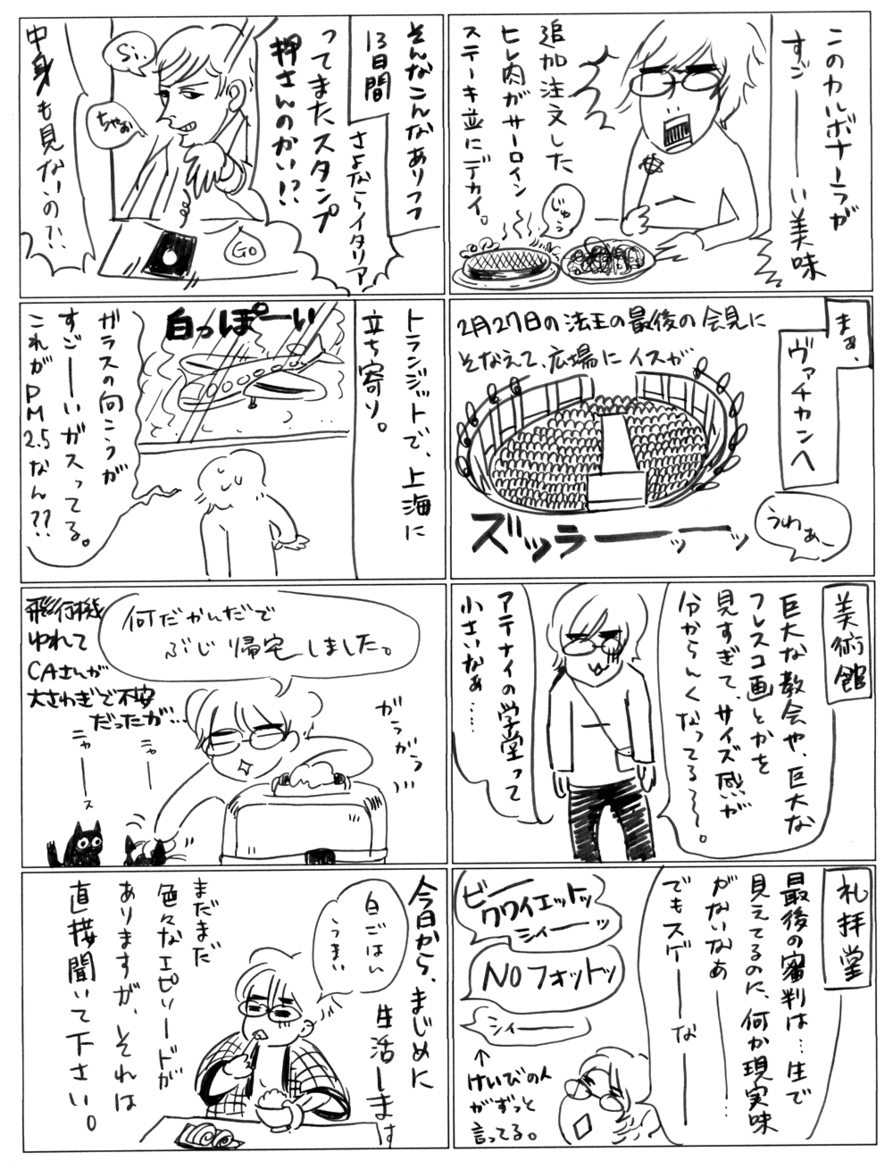 このカルボナーラが
すごーーい美味
追加注文した
ヒレ肉がサーロイン
ステーキ並にデカイ。
じゅぅ
まぁ、
ヴァチカンへ
2月27日の法王の最後の会見に
そなえて、広場にイスが
ズッラーーッーッ
うわぁー
美術館
巨大な教会や、巨大な
フレスコ画とかを
見すぎて、サイズ感が
分からんくなってる〜〜。
アテナイの学堂って
小さいなぁ……
礼拝堂
最後の審判は…生で
見えてるのに、何か現実味
がないなぁ……
でもスゲーーなーー
ビークワイエットッ
シィーーッ
NOフォットッ
シィーーー
↑
けいびの人
がずっと
言ってる。
そんなこんなありつつ
13日間
さよならイタリア
ってまたスタンプ
押さんのかい!?
中身も見ないの?!
Si
ちゃお
GO
トランジットで、上海に
立ち寄り。
白っぽーい
ガラスの向こうが
すごーーいガスってる。
これがPM2.5なん??
何だかんだで
ぶじ帰宅しました。
飛行機
ゆれて
CAさんが
大さわぎで不安
だったが…
がらがら…
ニャーー
ニャーース
今日から、まじめに
生活します
白ごはん
うまい
まだまだ
色々なエピソードが
ありますが、それは
直接聞いて下さい。